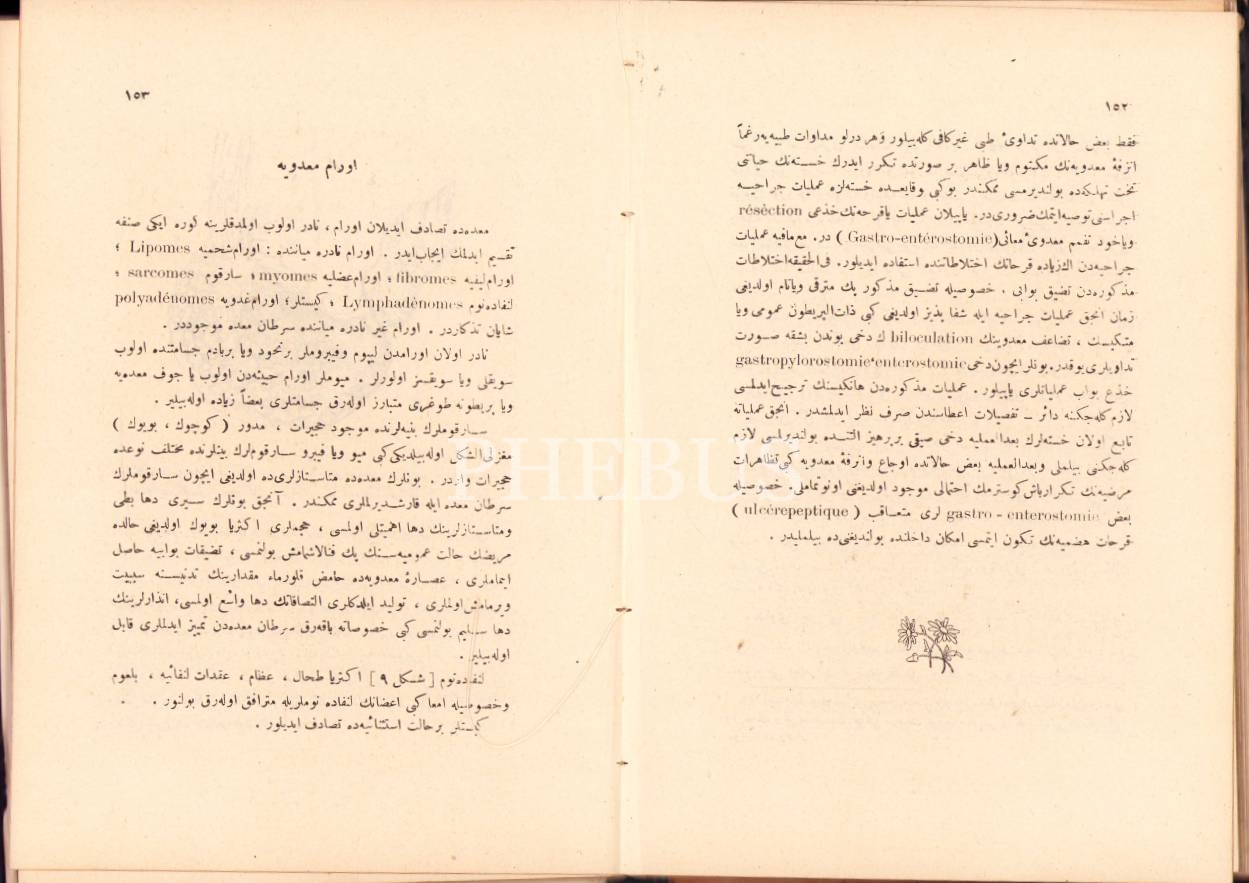 ١٥٢
فقط بعض حالاتده تداوئ طبی غیركافی كله‌بیلور وهر درلو مداوات طبیه‌یه رغماً
انزفهٔ معدویه‌نك مكتوم ویا ظاهر بر صورتده تكرر ایدرك خسته‌نك حیاتی
تحت تهلكه‌ده بولندیرمسی ممكندر بوكبی وقایعده خسته‌لره عملیات جراحیه
اجراسنی توصیه ایتمك ضروری‌در. یاپیلان عملیات یاقرحه‌نك خذعی résèction
ویاخود تفمم معدوئ معائی (Gastro-entérostomie) در. مع‌مافیه عملیات
جراحیه‌دن اك‌زیاده قرحانك اختلاطاتنده استفاده ایدیلور. فی‌الحقیقه اختلاطات
مذكوره‌دن تضیق بوابی. خصوصیله تضیق مذكور پك مترقی ویاتام اولدیغی
زمان انجق عملیات جراحیه ایله شفا پذیر اولدیغی كبی ذات‌البریطون عمومی ویا
متكیس ، تضاعف معدوینك biloculation ك دخی بوندن بشقه صورت
تداویلری یوقدر. بونلر ایچون‌دخی gastropylorostomie‘enterostomie
خذع بواب عملیاتلری یاپیلور. عملیات مذكوره‌دن هانكیسنك ترجیح ایدلمسی
لازم كله‌جكنه دائر ــ تفصیلات اعطاسندن صرف نظر ایدلمشدر. انجق‌عملیاته
تابع اولان خسته‌لرك بعدالعملیه دخی صیقی بر‌پرهیز التنده بولندیرلمسی لازم
كله‌جكنی بیلملی وبعدالعملیه بعض حالاتده اوجاع وانزفهٔ معدویه كبی‌تظاهرات
مرضیه‌نك تكرار باش كوسترمك احتمالی موجود اولدیغنی اونوتماملی. خصوصیله
بعض gastro - enterostomie لری متعاقب ( ulcérepeptique )
قرحات هضمیه‌نك تكون ایتمسی امكان داخلنده بولندیغنی‌ده بیلملیدر .
١٥٣
اورام معدویه
معده‌ده تصادف ایدیلان اورام ، نادر اولوب اولمدقلرینه كوره ایكی صنفه
تقسیم ایدلمك ایجاب‌ایدر . اورام نادره میاننده : اورام‌شحمیه Lipomes ؛
اورام‌لیفیه fibromes ؛ اورام‌عضلیه myomes ؛ سارقوم sarcomes ؛
لنفاده‌نوم Lymphadènomes ؛ كیستلر؛ اورام‌غدویه polyadénomes
شایان تذكاردر . اورام غیر نادره میاننده سرطان معده موجوددر .
نادر اولان اورامدن لیپوم وفیبروملر برنخود ویا بربادم جسامتنده اولوب
سویقلی ویا سویقسز اولورلر . میوملر اورام حیثه‌دن اولوب یا جوف معده‌یه
ویا پریطونه طوغری متبارز اوله‌رق جسامتلری بعضاً زیاده اوله‌بیلیر .
سارقوملرك بنیه‌لرنده موجود حجیرات ، مدور ( كوچوك ، بویوك )
مغزلی‌الشكل اوله‌بیلدیكی كبی میو ویا فیبرو سارقوم‌لرك بینلرنده مختلف نوعده
حجیرات واردر . بونلرك معده‌ده متاستازلری‌ده اولدیغی ایچون سارقوملرك
سرطان معده ایله قارشدیرلملری ممكندر . آنجق بونلرك سیری دها بطی
ومتاستازلرینك دها اهمیتلی اولمسی ، حجملری اكثریا بویوك اولدیغی حالده
مریضك حالت عمومیه‌سنك پك فنالاشمامش بولنمسی ، تضیقات بوابیه حاصل
ایتماملری ، عصارهٔ معدویه‌ده حامض قلورماء مقدارینك تدنیسنه سببیت
ویرمامش‌اولملری ، تولید ایلدكلری التصاقاتك دها واسع اولمسی، انذارلرینك
دها سلیم بولنمسی كبی خصوصاته باقه‌رق سرطان معده‌دن تمییز ایدلملری قابل
اوله‌بیلیر .
لنفاده‌نوم [ شكل ٩ ] اكثریا طحال ، عظام ، عقدات لنفائیه ، بلعوم
وخصوصیله امعا كبی اعضانك لنفاده نوملریله مترافق اوله‌رق بولنور .
كیستلر برحالت استثنائیه‌ده تصادف ایدیلور .
PHEBUS